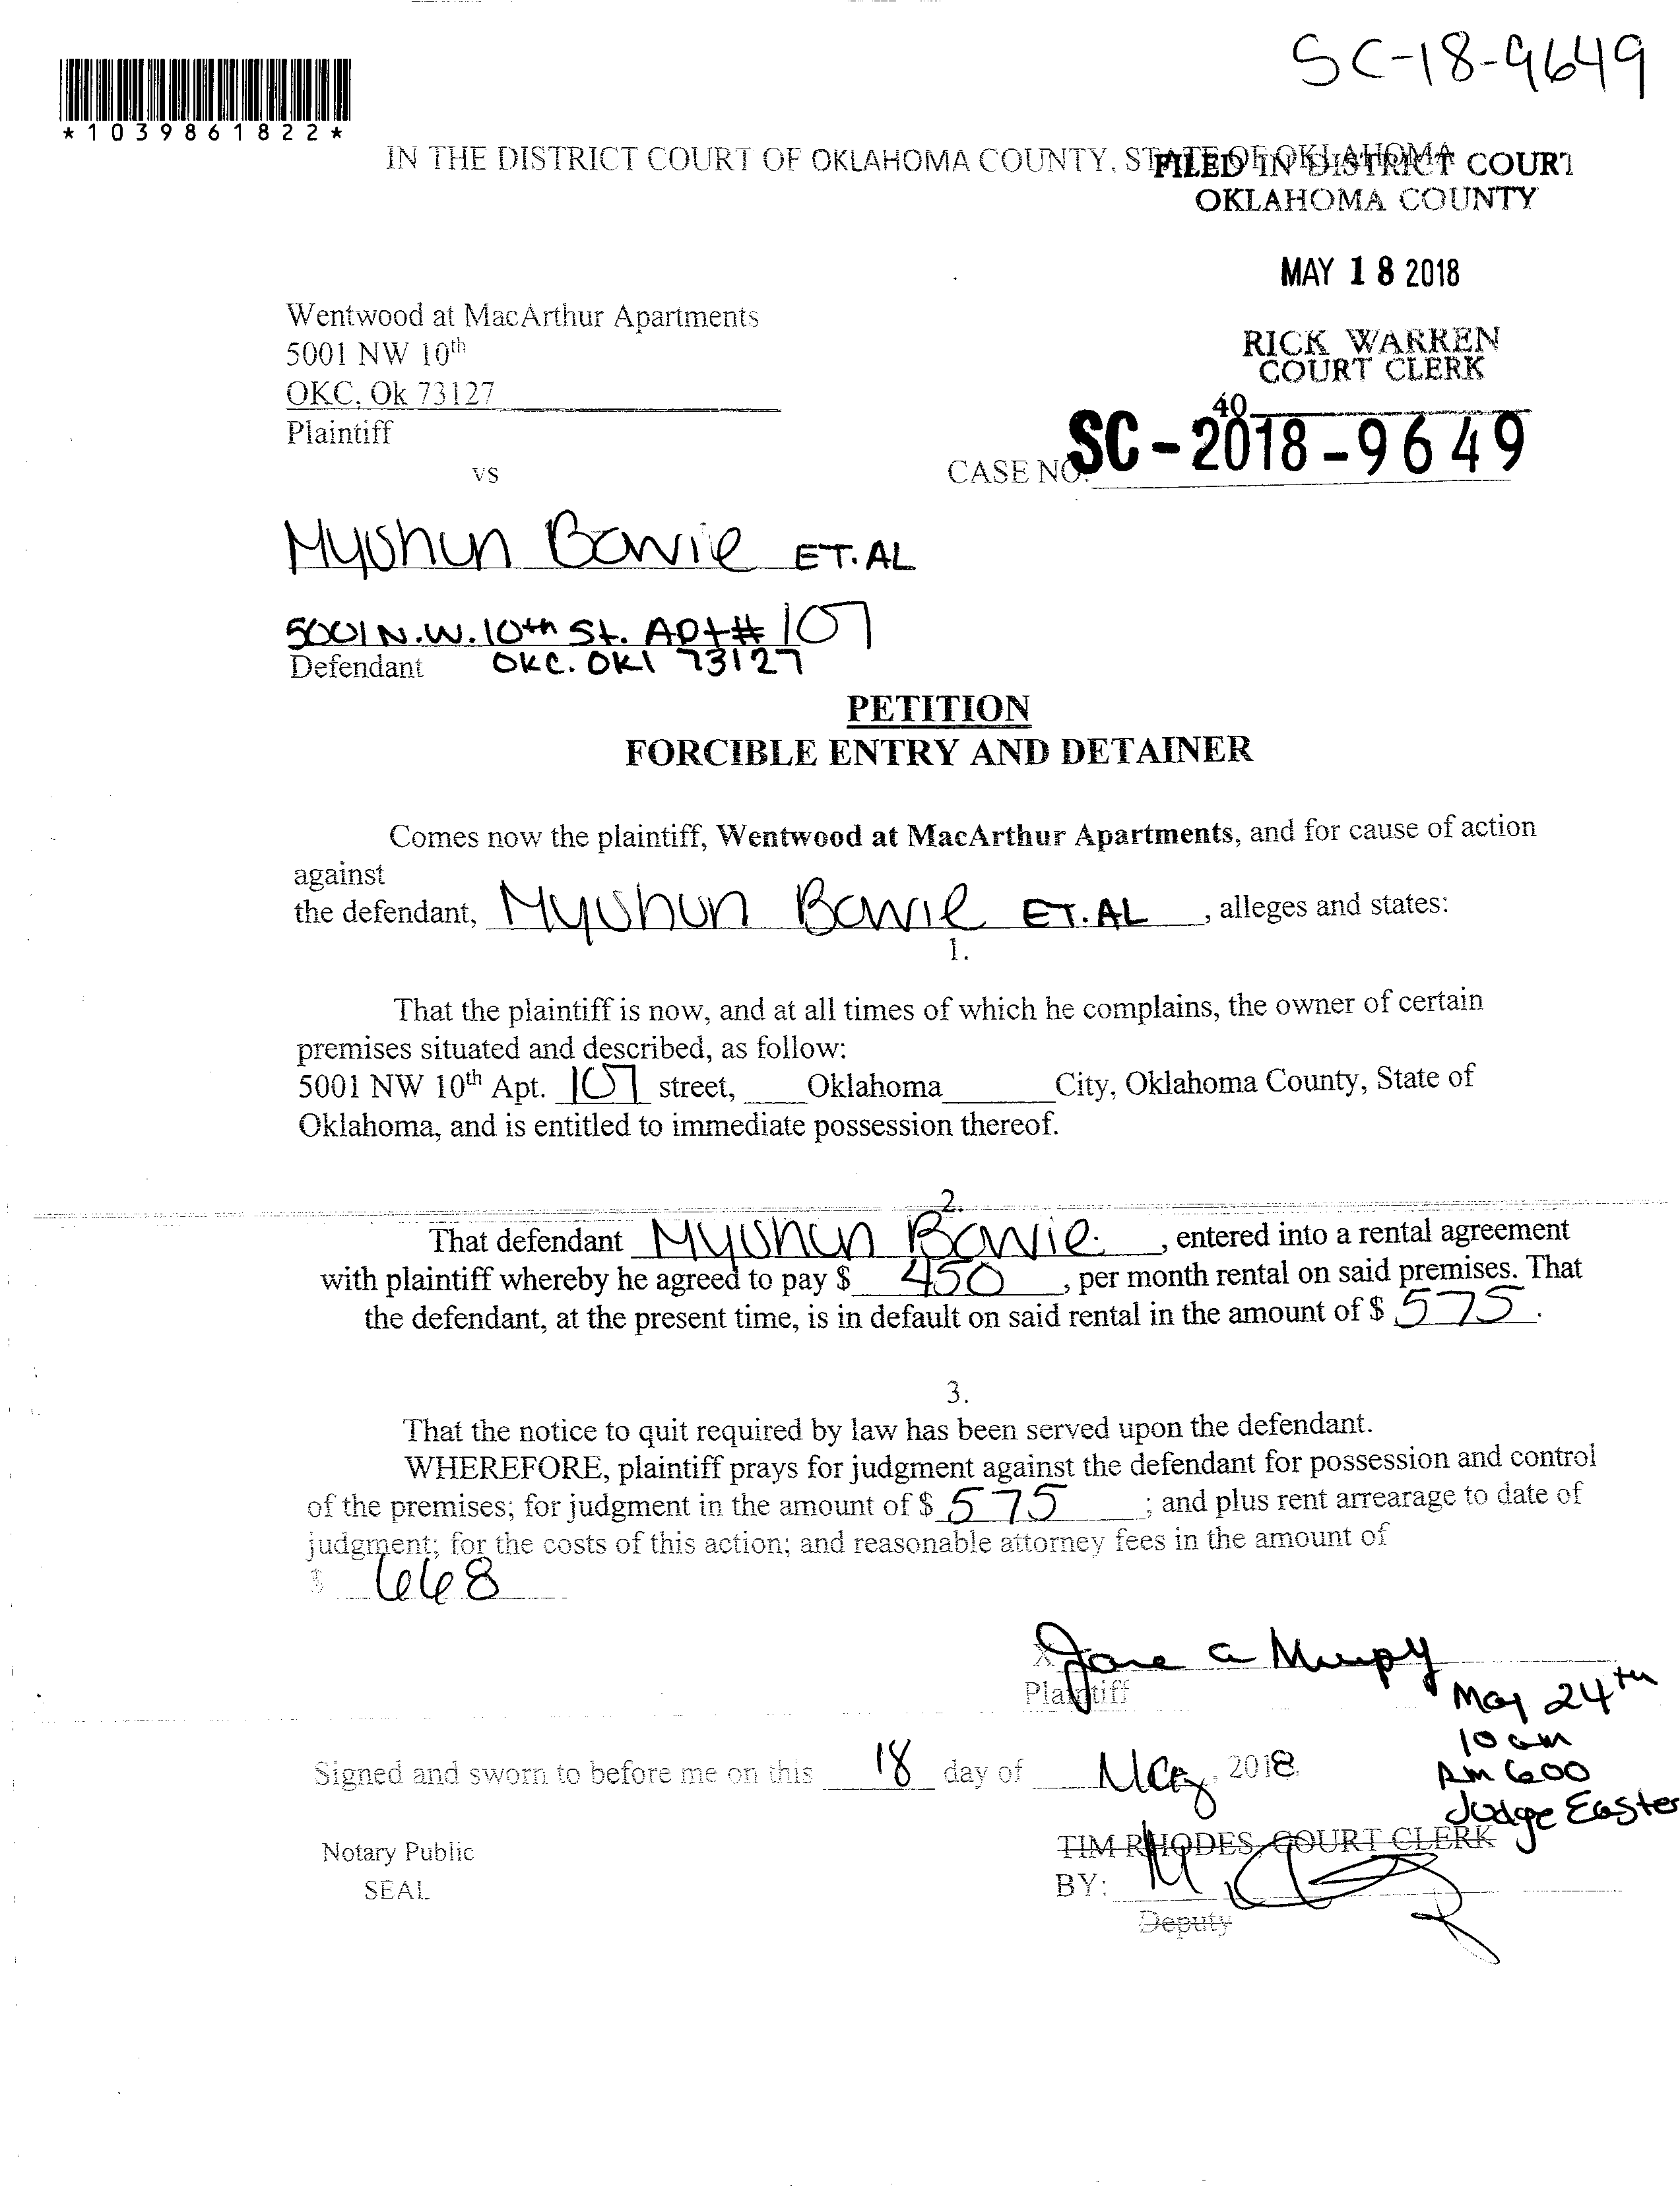 SC-18-9649
*1039861822*
IN THE DISTRICT COURT OF OKLAHOMA COUNTY, STATE OF OKLAHOMA
FILED IN DISTRICT COURT
OKLAHOMA COUNTY
MAY 18 2018
Wentwood at MacArthur Apartments
5001 NW 10th
OKC, Ok 73127
Plaintiff
RICK WARREN
COURT CLERK
40
vs
CASE NO. SC-2018-9649
Myushun Bowie ET.AL
5001 N.W. 10th St. APt# 107
Defendant OKC. OKl 73127
PETITION
FORCIBLE ENTRY AND DETAINER
Comes now the plaintiff, Wentwood at MacArthur Apartments, and for cause of action
against
the defendant, Myushun Bowie ET.AL, alleges and states:
1.
That the plaintiff is now, and at all times of which he complains, the owner of certain
premises situated and described, as follow:
5001 NW 10th Apt. 107 street, Oklahoma City, Oklahoma County, State of
Oklahoma, and is entitled to immediate possession thereof.
2.
That defendant Myushun Bowie, entered into a rental agreement
with plaintiff whereby he agreed to pay $ 450, per month rental on said premises. That
the defendant, at the present time, is in default on said rental in the amount of $ 575.
3.
That the notice to quit required by law has been served upon the defendant.
WHEREFORE, plaintiff prays for judgment against the defendant for possession and control
of the premises; for judgment in the amount of $ 575; and plus rent arrearage to date of
judgment; for the costs of this action; and reasonable attorney fees in the amount of
$ 668
X Jane a Murpy
Plaintiff
May 24th
10am
Rm 600
Judge Easter
Signed and sworn to before me on this 18 day of May, 2018.
Notary Public
SEAL
TIM RHODES, COURT CLERK
BY:
Deputy